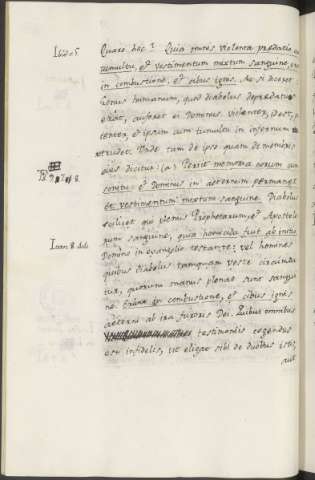 Isaiæ 5.
Quare hoc? Quia omnis violenta prædatio cum
tumultu, et vestimentum mixtum sanguine, erit
in combustione, et cibus ignis. Ac si diceret:
Genus humanum, quod diabolus deprædatus
erat, auferet ei Dominus violenter, idest, po-
tenter, et ipsum cum tumultu in infernum
retrudet. Unde tam de ipso quam de membris
eius dicitur: (a) Periit memoria eorum cum
sonitu: et Dominus in æternum permanet
et vestimentum mixtum sanguine. Diabolus
scilicet qui plenus Prophetarum, et Apostolo
rum sanguine, quia homicida fuit ab initio,
Ioan. 8
Domino in evangelio testante; vel homines
quibus diabolus tamquam veste circunda
tur, quorum manus plenæ sunt sangui
ne. Erunt in combustione, et cibus ignis
æterni ab ira furoris Dei. Quibus omnibus
testimoniis cogendus
est infidelis, ut eligat sibi de duobus istis,
aut